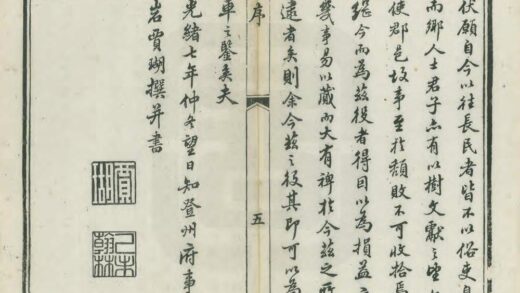 伏願自今以往長民者皆不以俗吏自
而鄉人士君子亦有以樹文獻之望
使郡邑故事至於頹敗不可收拾焉
繼今而為茲役者得因以為損益
幾事易以蕆而大有裨於今茲之所
逮者矣則余今茲之役其即可以為
序
五
車之鑒矣夫
光緒七年仲冬望日知登州府事
岩賈瑚撰并書
賈瑚
己未翰林